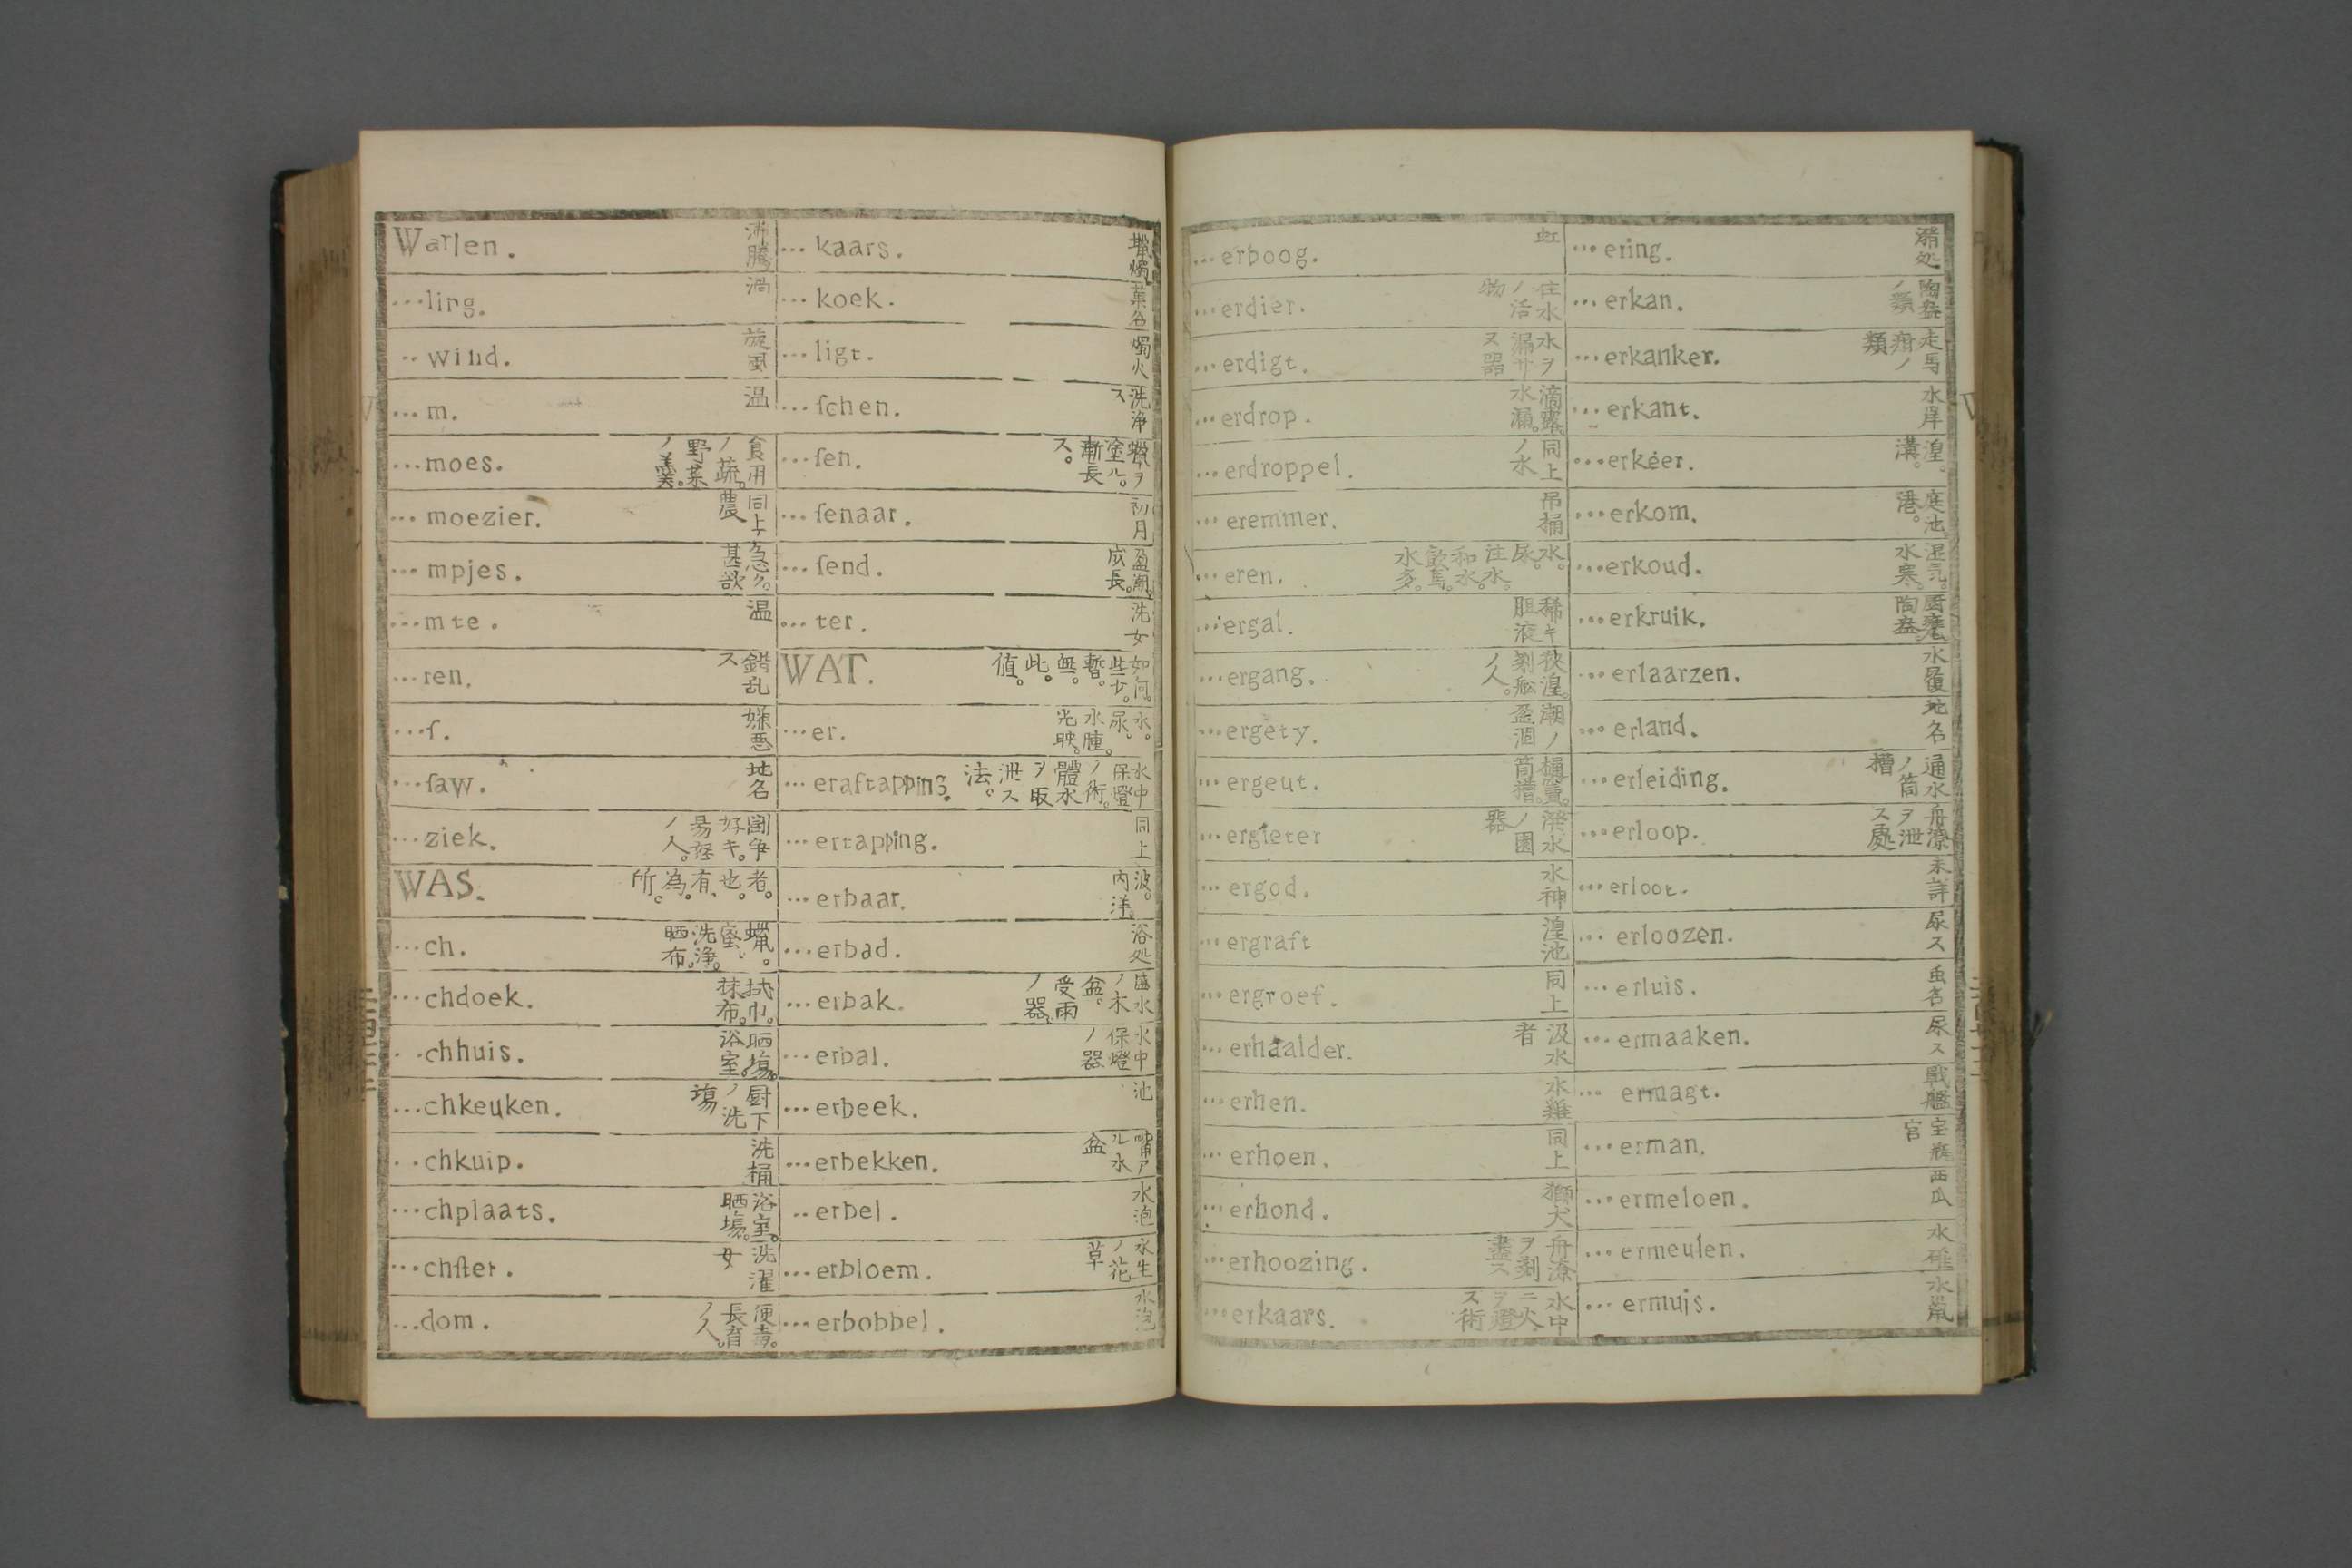 Warlen. 沸騰
...ling. 渦
..wind. 旋風
...m. 温
...moes. 食用ノ蔬。野菜ノ羹。
...moezier. 同上農
...mpjes. 急々。甚欲
...mte. 温
...ren. 錯乱ス
...ſ. 嫌悪
...ſaw. 地名
...ziek. 闘争好キ。易怒ノ人。
WAS. 者。也。有、為。所。
...ch. 蠟。蜜、洗浄。晒布。
...chdoek. 拭巾。抹布。
..chhuis. 晒場。浴室。
...chkeuken. 厨下ノ洗場
..chkuip. 洗桶
...chplaats. 浴室。晒場。
...chſter. 洗濯女
...dom. 長育ノ人。
...kaars. 蠟燭
...koek. 菓名
...ligt. 燭火
...ſchen. 洗浄ス
...ſen. 蠟ヲ塗ル。漸長ス。
...ſenaar. 初月
...ſend. 成長。
...ter. 洗女
WAT. 如何。些少。暫。無。此。値。
...er. 水。尿、水腫。光映。
...eraftapping. 水中保燈ノ術。體水ヲ取泄ス法。
...ertapping. 同上
...erbaar. 波。内洋。
...erbad. 浴処
...erbak. 水ノ木盆。受雨ノ器。
...erbal. 水中保燈ノ器
...erbeek. 池
...erbekken. ル水盆
..erbel. 水泡
...erbloem. 水生ノ花草
...erbobbel. 水泡
...erboog. 虹
...erdier. 住水ノ活物
...erdigt. 水ヲ漏サヌ器
...erdrop. 滴露。水漏。
...erdroppel. 同上ノ水
...eremmer. 吊桶
...eren. 水。尿。注水。和水。飲馬。水多。
...ergal. 稀キ胆液
...ergang. 狹湟。刹舩ノ人。
...ergety. 潮ノ盈涸
...ergeut. 筒槽。
...ergieter 潑水ノ園器
...ergod. 水神
...ergraft 湟池
...ergroef. 同上
...erhaalder. 汲水者
...erhen. 水雞
...erhoen. 同上
...erhond. 獅犬
...erhoozing. 舟潦ヲ刹盡ス
...erkaars. 水中ニ火ヲ燈ス術
...ering. 溺処
...erkan. 陶盆ノ類
...erkanker. 走馬疳ノ類
...erkant. 水岸
...erkeer. 湟。溝。
...erkom. 庭池。港。
...erkoud. 湿気。水寒。
...erkruik. 陶盆
...erlaarzen. 水履
...erland. 地名
...erleiding. 通水ノ筒槽
...erloop. 舟潦ヲ泄ス處
...erloot. 未詳
...erloozen. 尿ス
...erluis. 虫名
...ermaaken. 尿ス
...ermagt. 戰艦
...erman. 官
...ermeloen. 西瓜
...ermeulen. 水碓
...ermuis. 水鼠